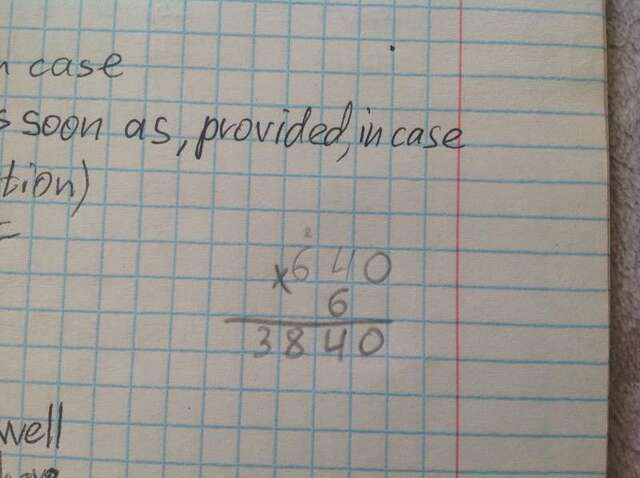 n case
s soon as, provided, in case
tion)
=
2
x640
6
3840
well